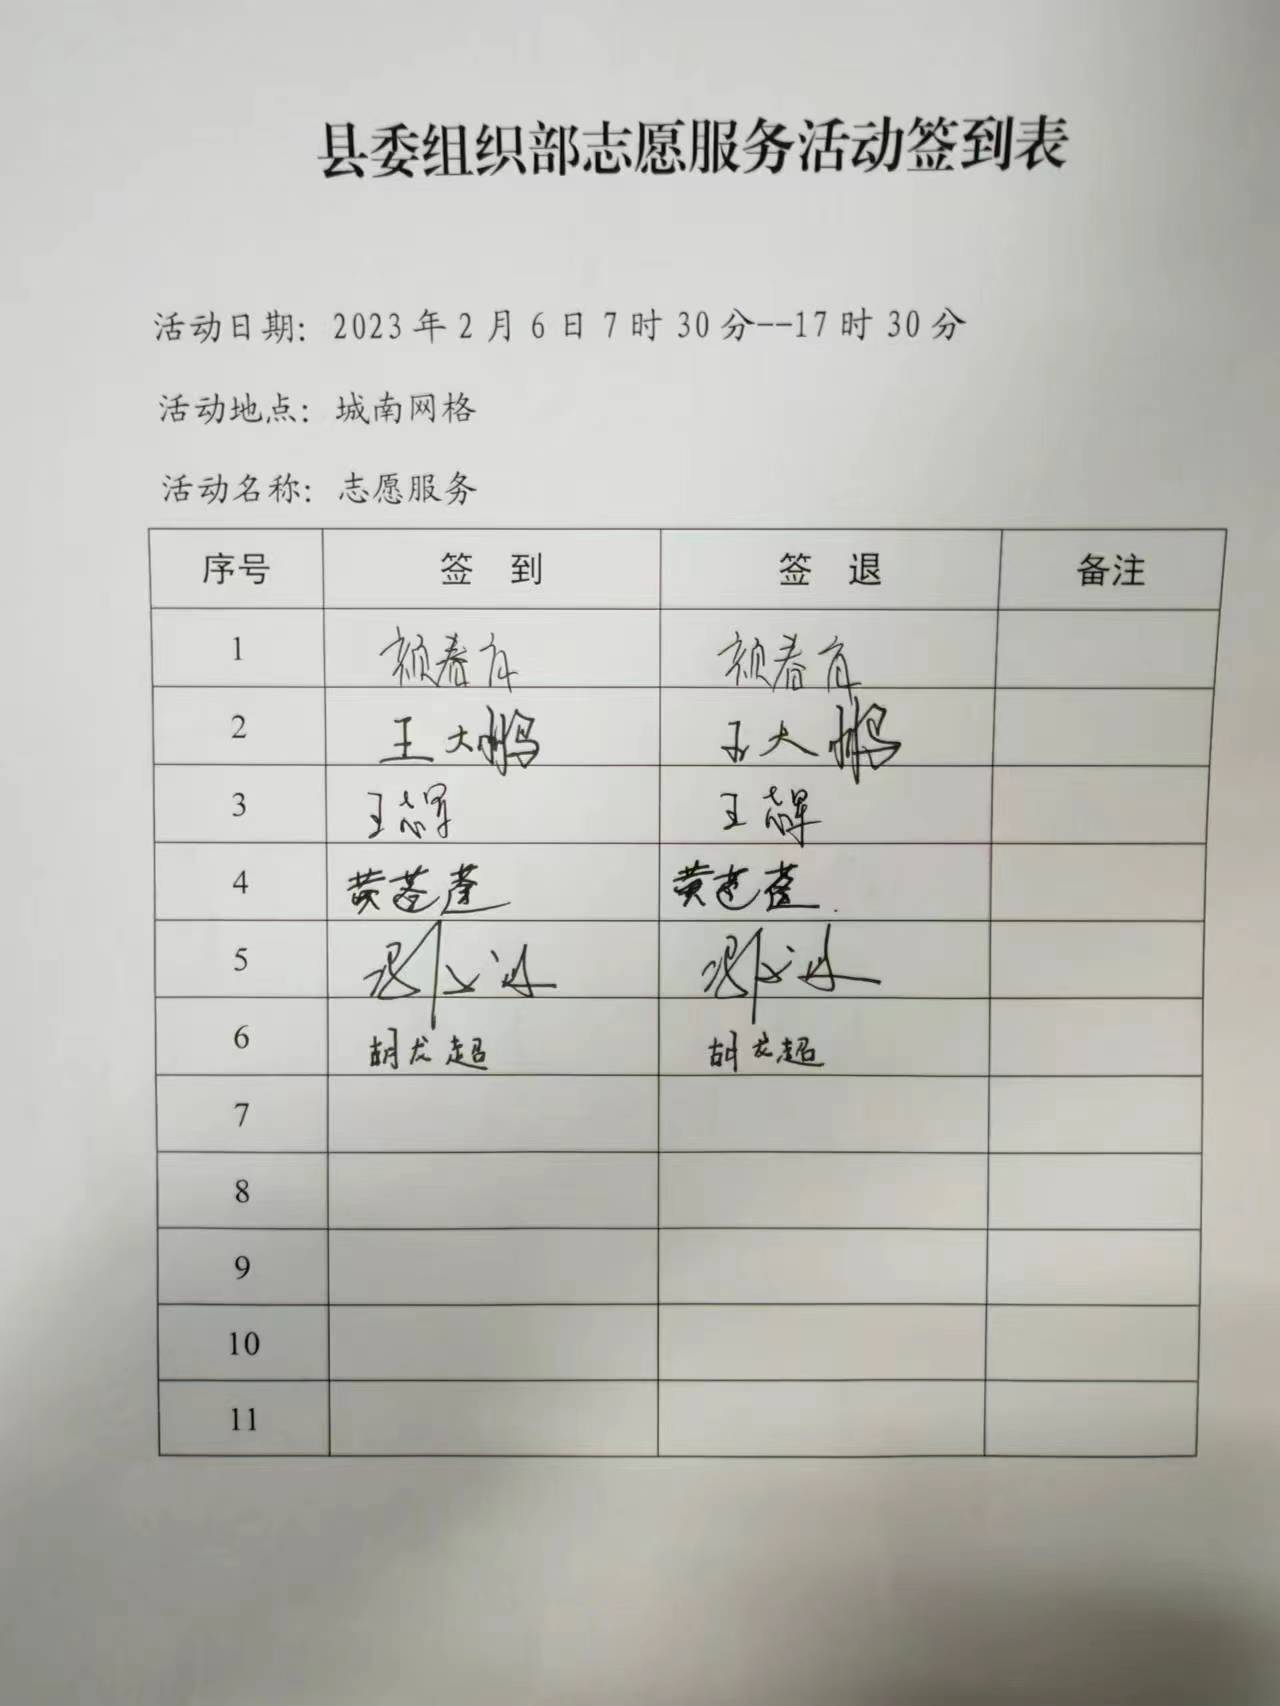 县委组织部志愿服务活动签到表
活动日期：2023年2月6日7时30分--17时30分
活动地点：城南网格
活动名称：志愿服务
序号 签 到 签 退 备注
1 颜春育 颜春育
2 王大鹏 王大鹏
3 王志军 王志军
4 黄 黄
5
6 胡龙超 胡龙超
7
8
9
10
11